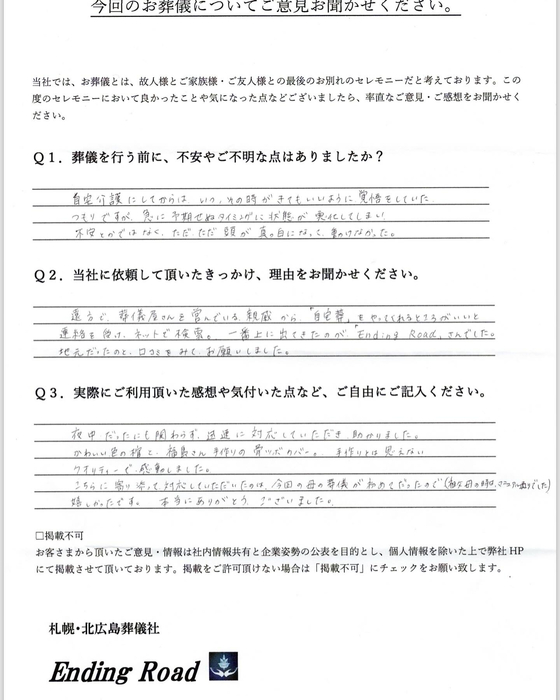 今回のお葬儀についてご意見お聞かせください。
当社では、お葬儀とは、故人様とご家族様・ご友人様との最後のお別れのセレモニーだと考えております。この
度のセレモニーにおいて良かったことや気になった点などございましたら、率直なご意見・ご感想をお聞かせく
ださい。
Q1．葬儀を行う前に、不安やご不明な点はありましたか？
自宅介護にしてからは、いつ、その時がきてもいいように覚悟をしていた
つもりですが、急に予期せぬタイミングに状態が悪化してしまい、
不安とかではなく、ただただ頭が真っ白になって、動けなかった。
Q2．当社に依頼して頂いたきっかけ、理由をお聞かせください。
遠方で、葬儀屋さんを営んでいる親戚から、「自宅葬」をやってくれるところがいいと
連絡を受け、ネットで検索。一番上に出てきたのが「Ending Road」さんでした。
地元だったのと、口コミをみて、お願いしました。
Q3．実際にご利用頂いた感想や気付いた点など、ご自由にご記入ください。
夜中だったにも関わらず、迅速に対応していただき、助かりました。
かわいい色の棺と、福島さん手作りの骨ツボのカバー。手作りとは思えない
クオリティーで感動しました。
こちらに寄り添って対応していただいたのは、今回の母の葬儀が初めてだったので(祖父母の時は、マニュアル通りでした)
嬉しかったです。本当にありがとうございました。
□掲載不可
お客さまから頂いたご意見・情報は社内情報共有と企業姿勢の公表を目的とし、個人情報を除いた上で弊社 HP
にて掲載させて頂いております。掲載をご許可頂けない場合は「掲載不可」にチェックをお願い致します。
札幌・北広島葬儀社
Ending Road